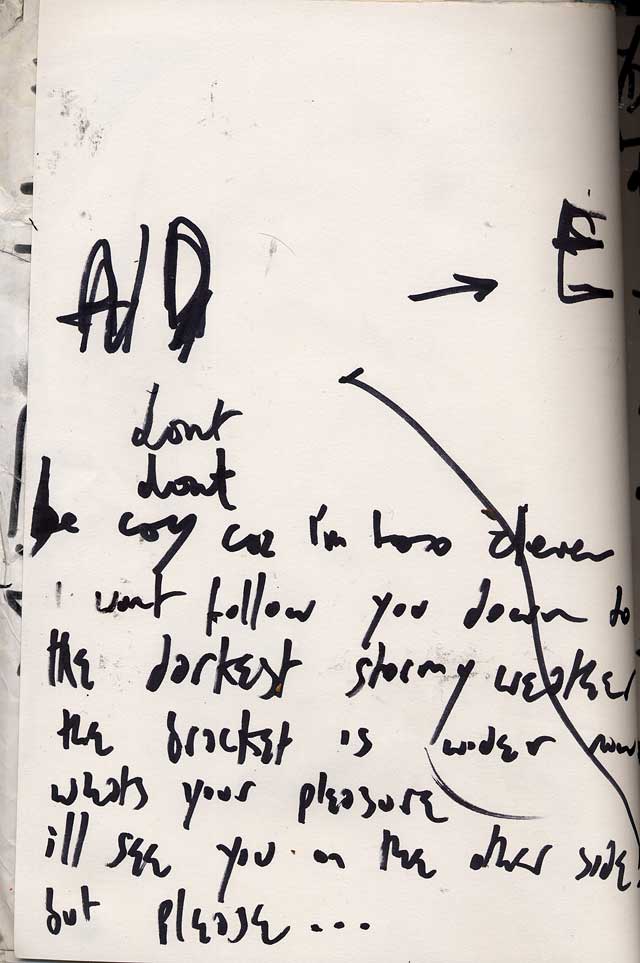 A/D → E
dont
dont
be coy coz i'm tooo clever
i wont follow you down to
the darkest stormy weather
the bracket is wider now
whats your pleasure
ill see you on the other side
but please...